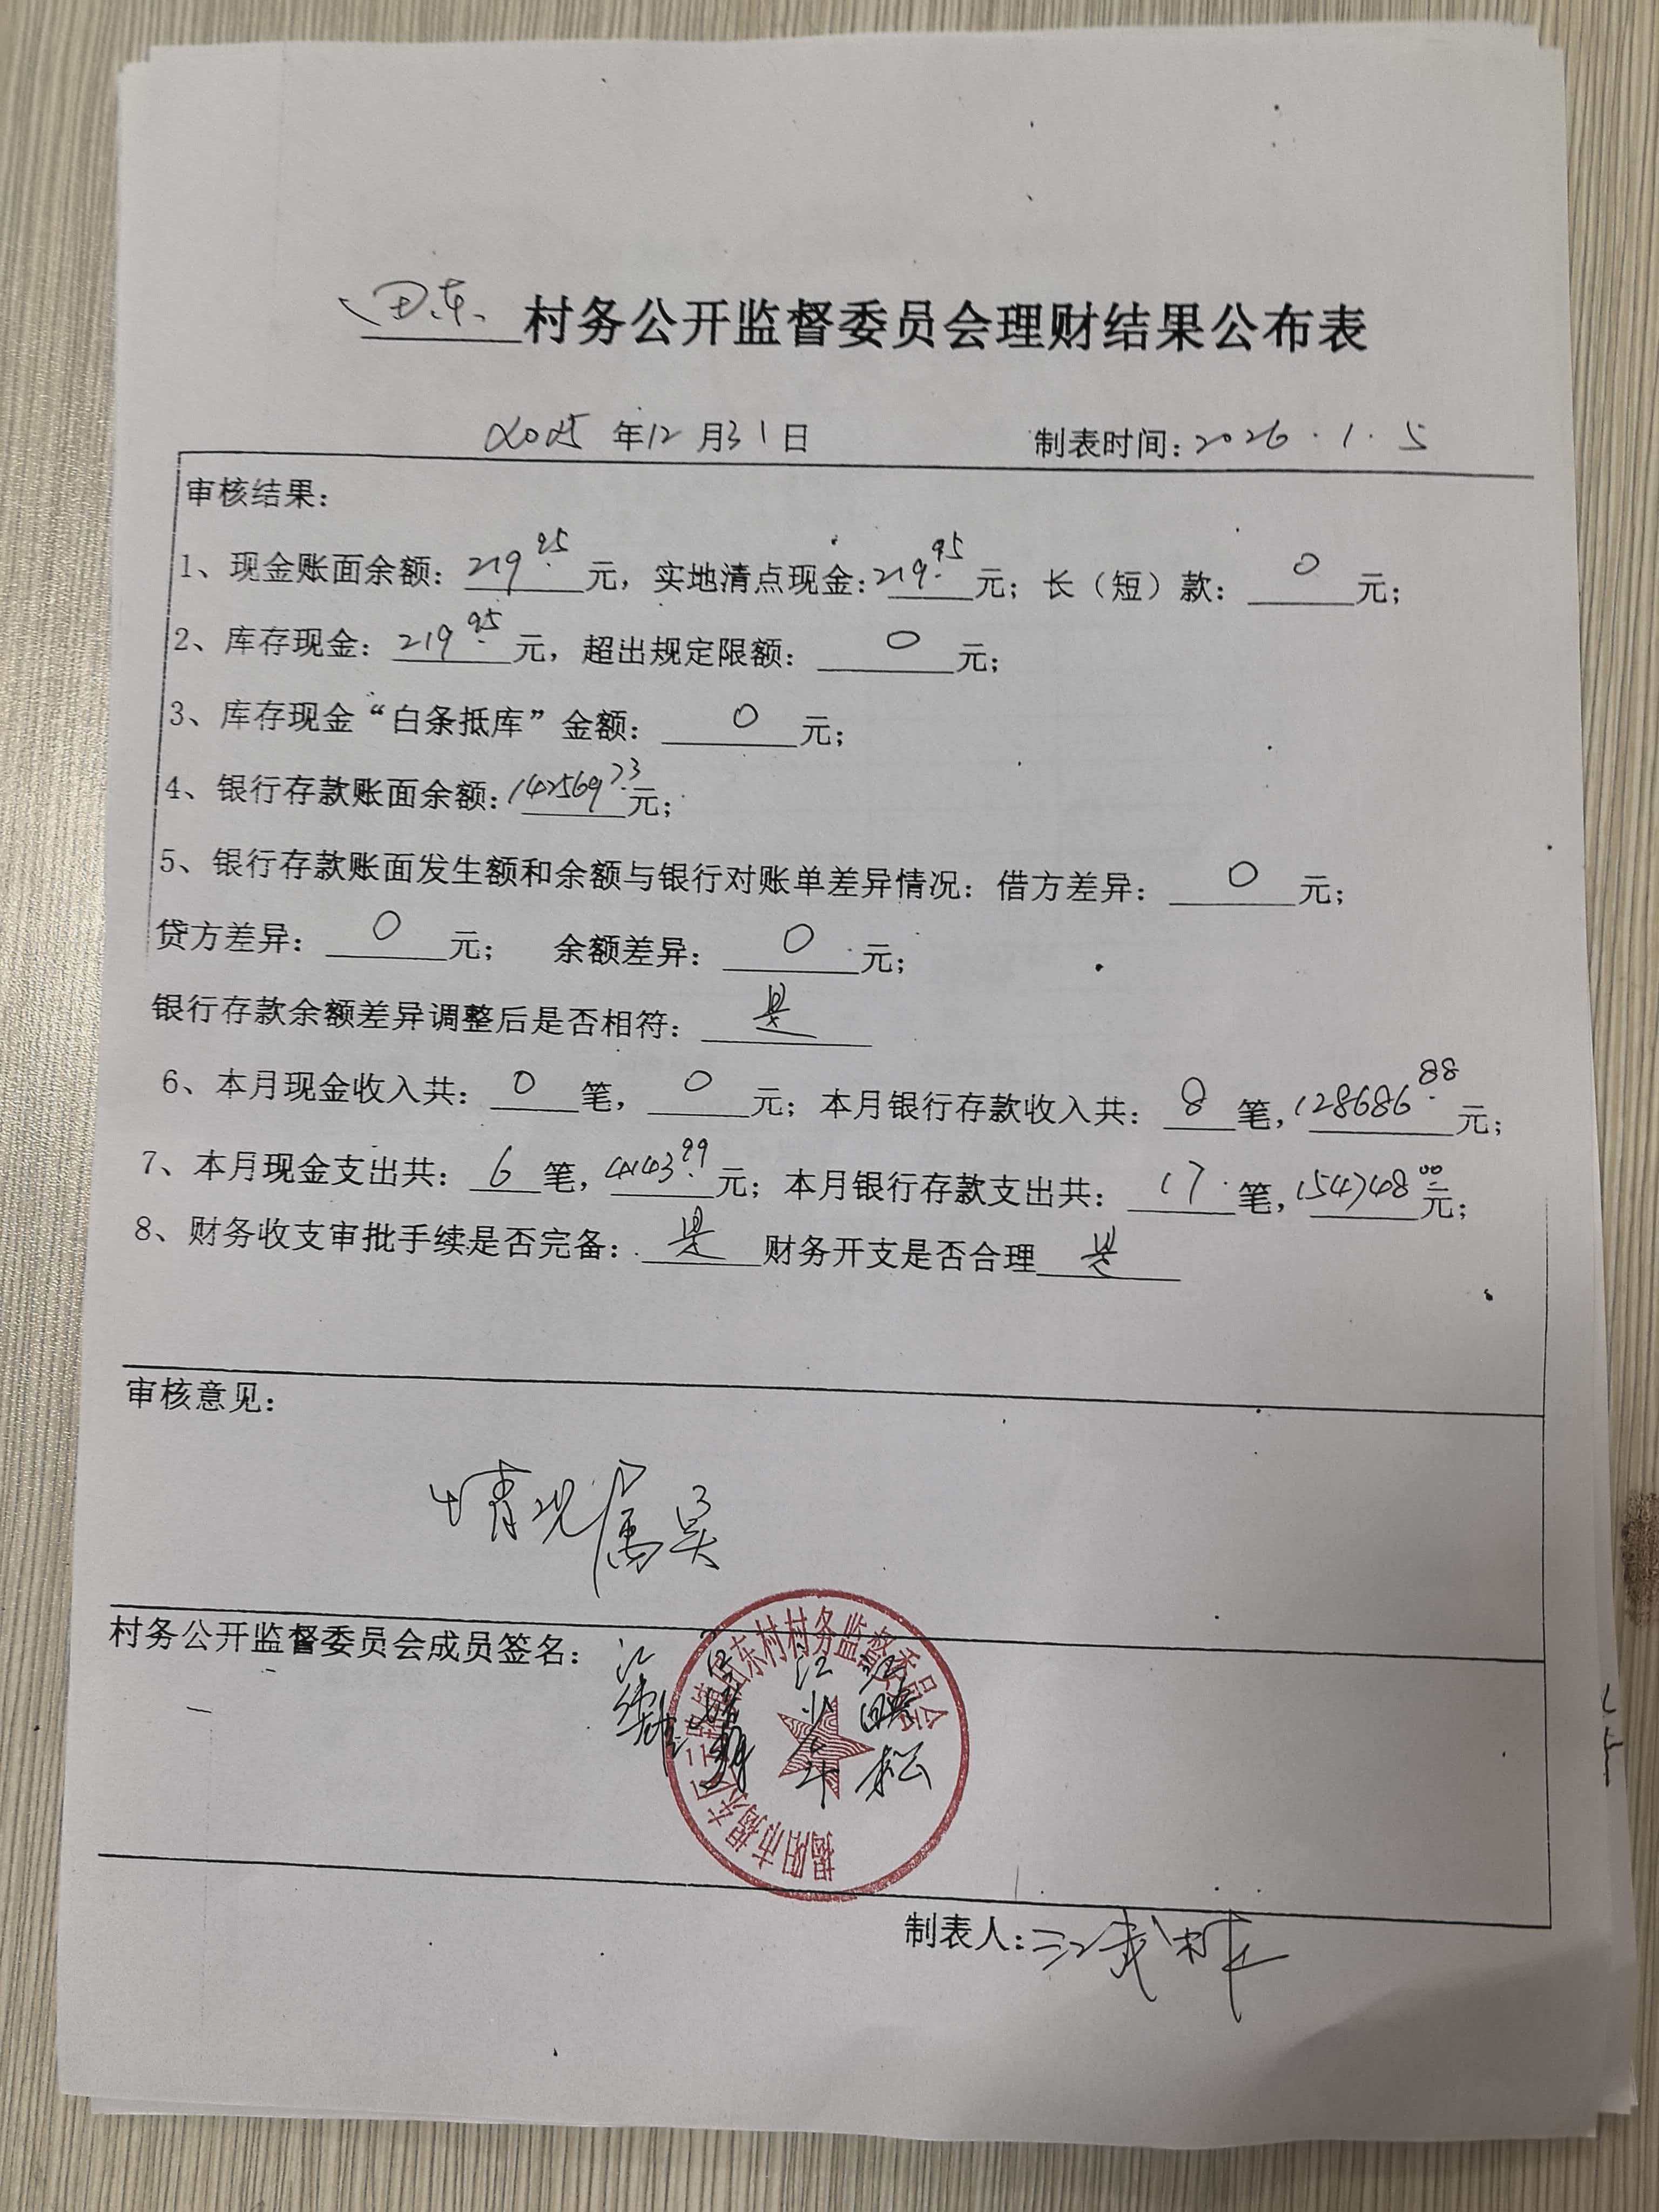 田东 村务公开监督委员会理财结果公布表
2025 年12 月31日 制表时间:2026.1.5
审核结果:
1、现金账面余额:219.95元,实地清点现金:219.95元;长(短)款:0元;
2、库存现金:219.95元,超出规定限额:0元;
3、库存现金“白条抵库”金额:0元;
4、银行存款账面余额:142569.73元;
5、银行存款账面发生额和余额与银行对账单差异情况:借方差异:0元;
贷方差异:0元; 余额差异:0元;
银行存款余额差异调整后是否相符:是
6、本月现金收入共:0笔,0元;本月银行存款收入共:8笔,128686.88元;
7、本月现金支出共:6笔,4143.99元;本月银行存款支出共:17笔,154748.00元;
8、财务收支审批手续是否完备:是 财务开支是否合理 是
审核意见:
情况属实
村务公开监督委员会成员签名:
江映松
揭阳市揭东区玉滘镇田东村村务监督委员会
制表人:江武